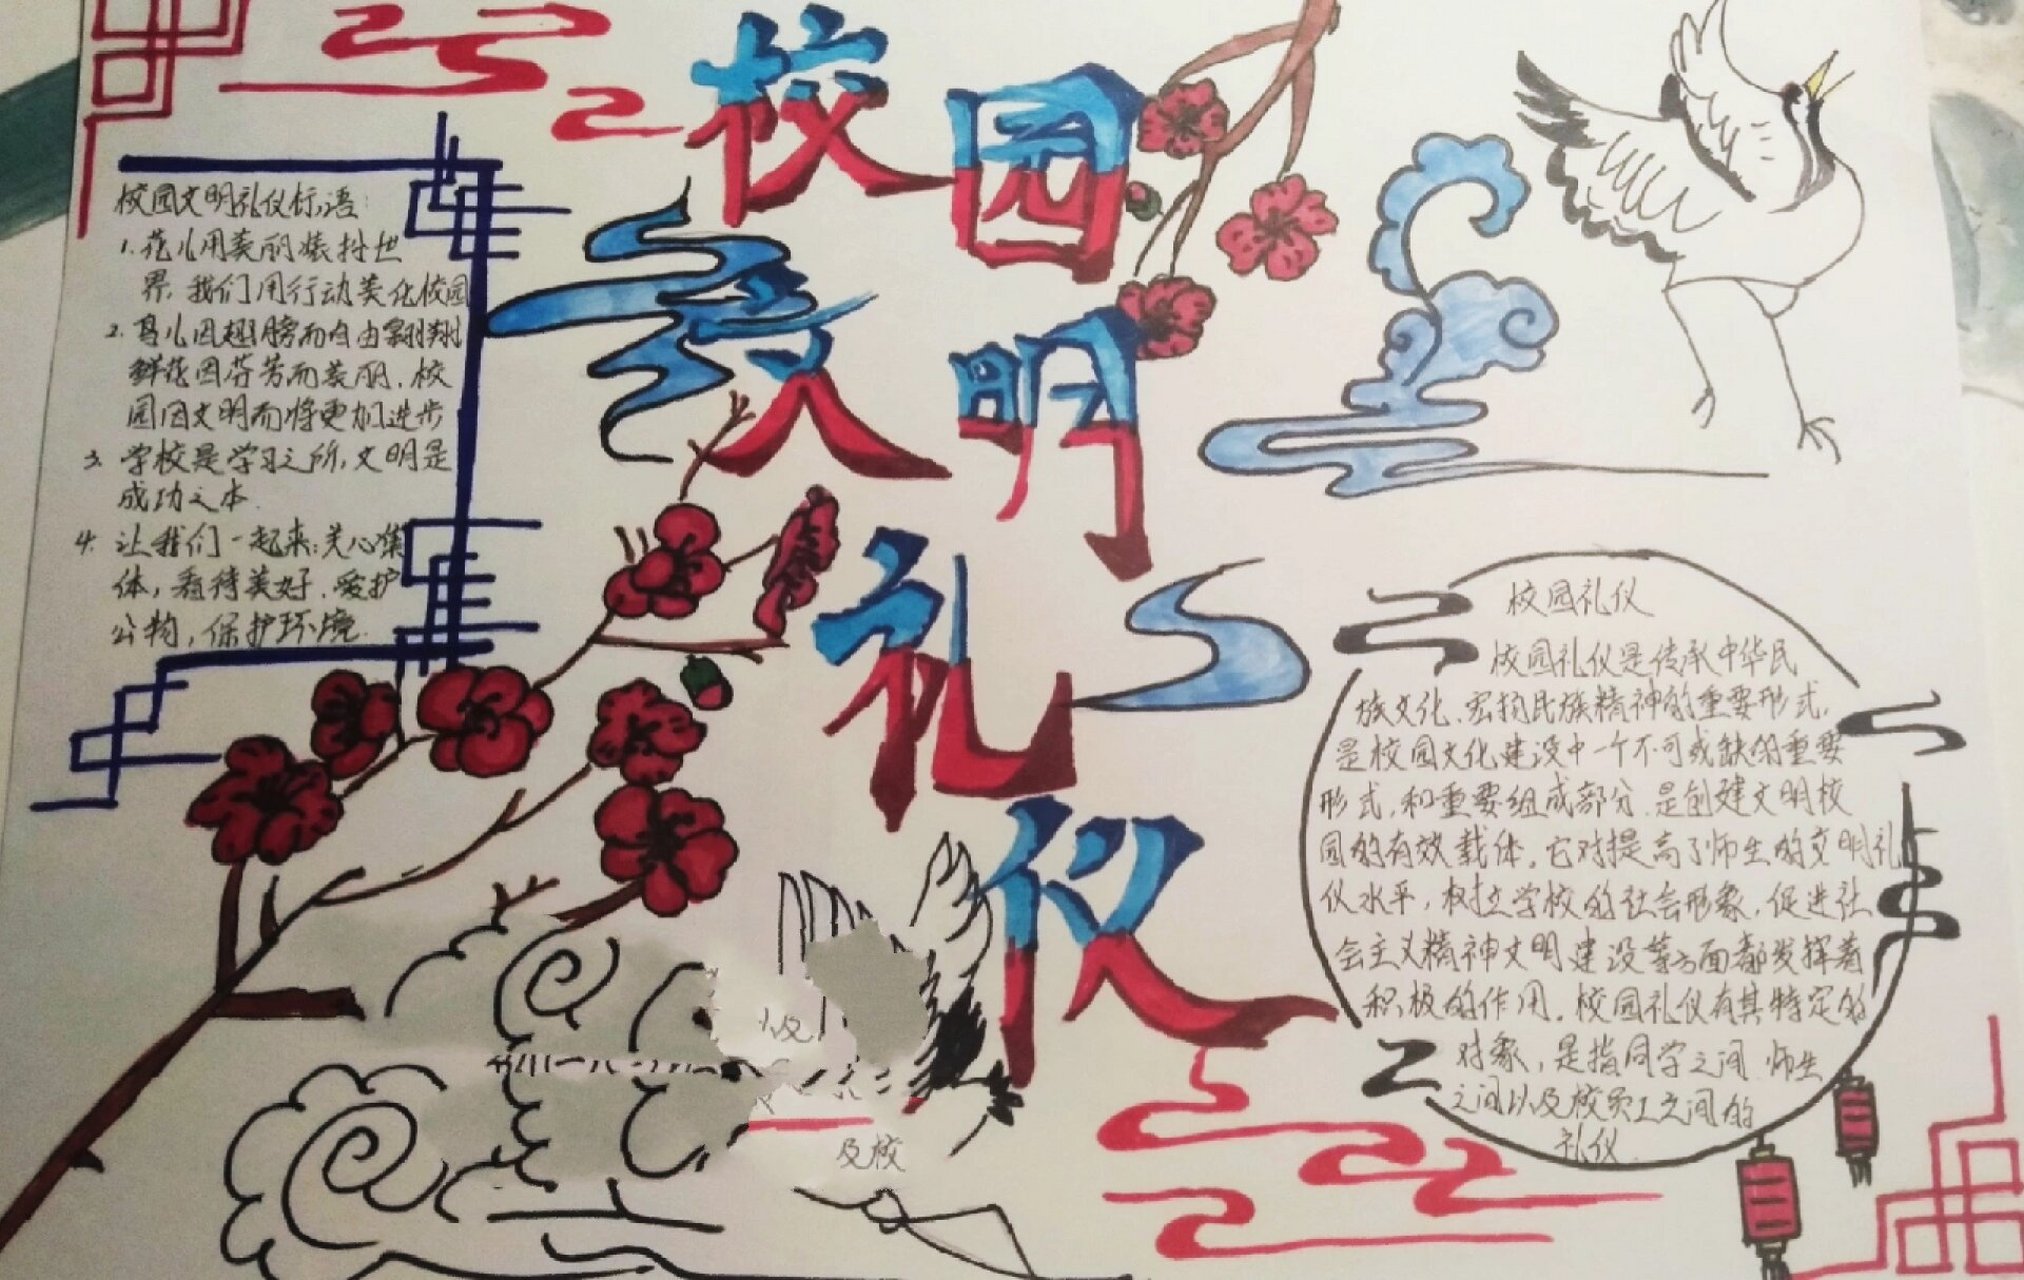 校园
文明
礼仪
校园文明礼仪标语:
1.花儿用美丽装扮世
界,我们用行动美化校园
2.鸟儿因翅膀而自由翱翔
鲜花因芬芳而美丽.校
园因文明而将更加进步
3.学校是学习之所,文明是
成功之本.
4.让我们一起来:关心集
体,看待美好.爱护
公物,保护环境.
校园礼仪
校园礼仪是传承中华民
族文化、宏扬民族精神的重要形式,
是校园文化建设中一个不可或缺的重要
形式,和重要组成部分.是创建文明校
园的有效载体.它对提高了师生的文明礼
仪水平,树立学校的社会形象,促进社
会主义精神文明建设等方面都发挥着
积极的作用.校园礼仪有其特定的
对象,是指同学之间.师生
之间以及校员工之间的
礼仪.
及校